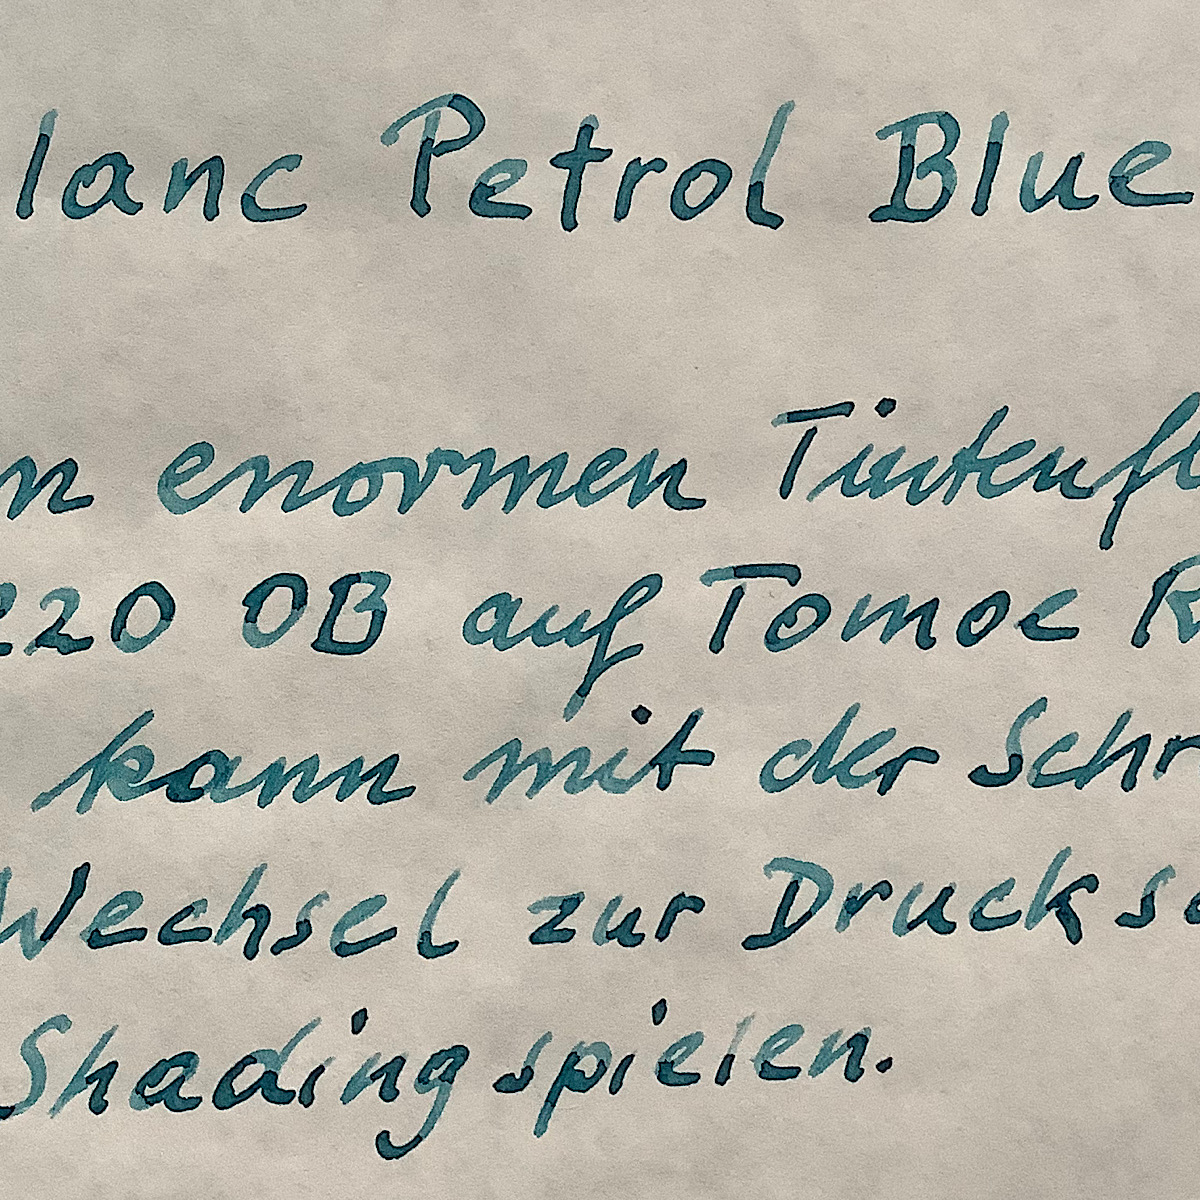 lanc Petrol Blue
n enormen Tintenfl
220 OB auf Tomoe R
kann mit der Schr
Wechsel zur Drucksc
Shading spielen.